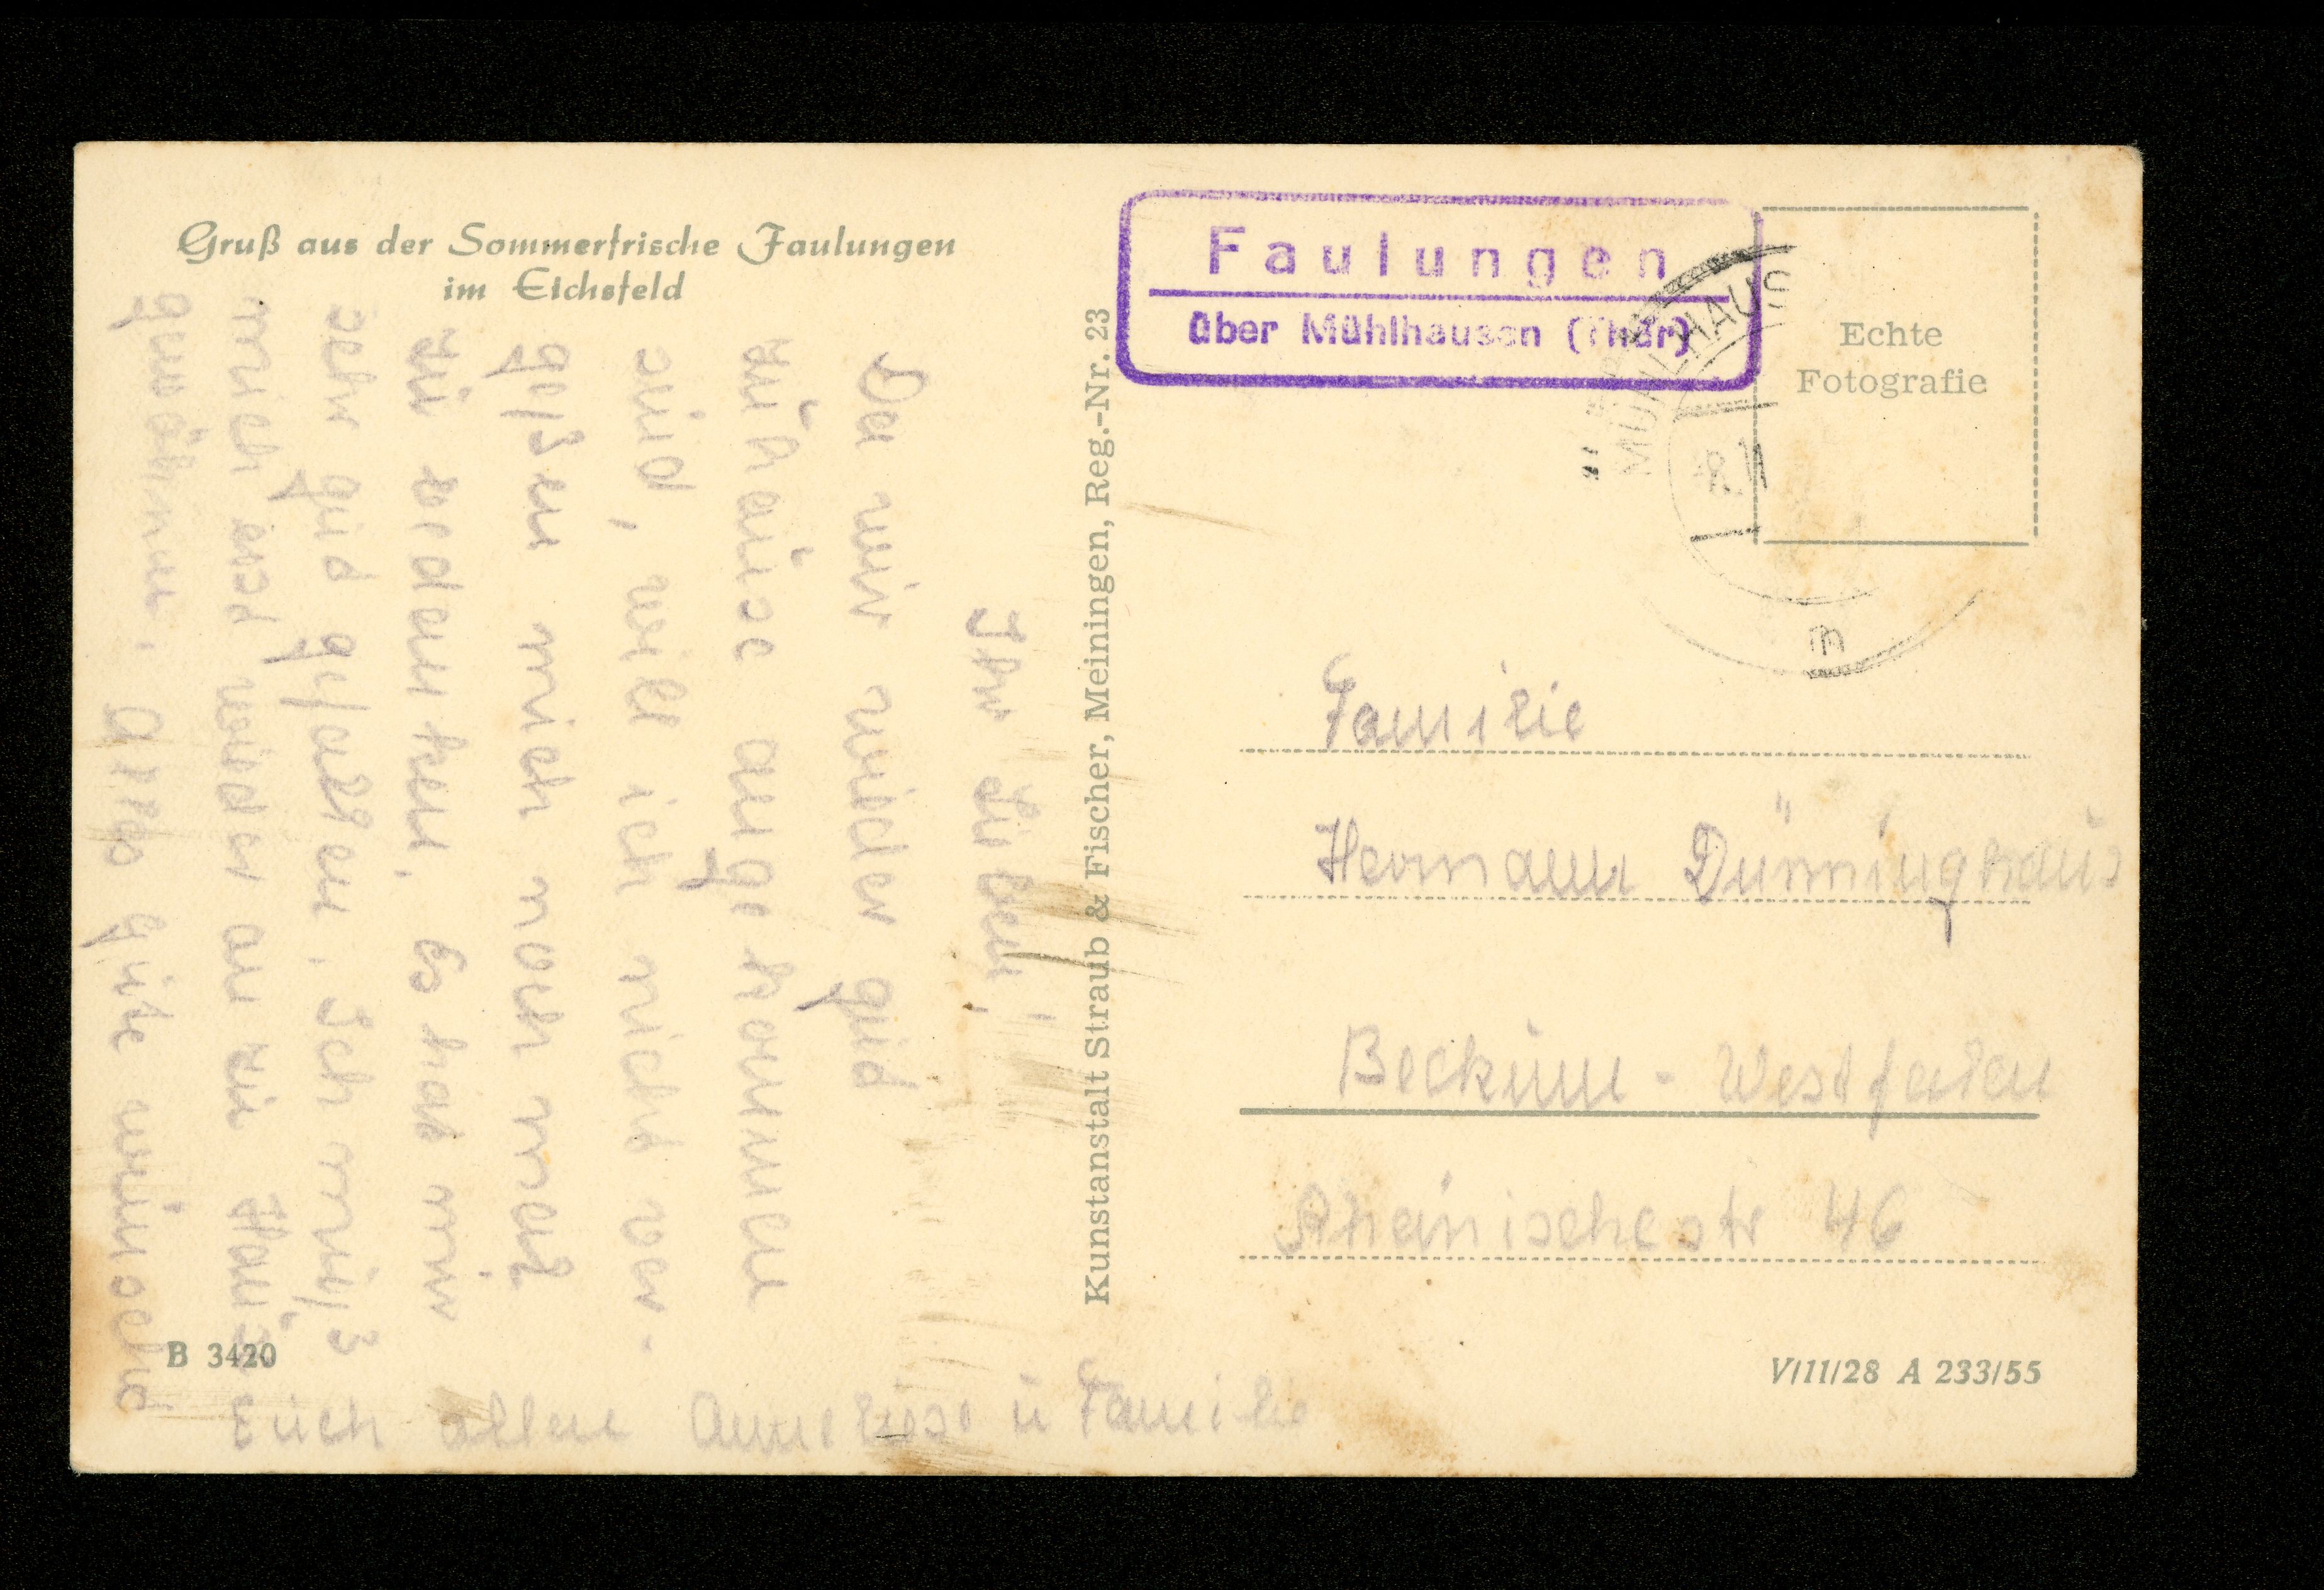 Gruß aus der Sommerfrische Faulungen
im Eichsfeld
Ihr Lieben!
Da wir wieder gud
zu haüse angekommen
sind, will ich nicht ver-
geßen mich noch mal
zu bedanken. Es had mir
sehr gud gefallen. Ich müß
mich erst wieder an zu Haüse
gewöhnen. Alles güte wünscht
Eüch allen Anneliese ü Familie
Kunstanstalt Straub & Fischer, Meiningen, Reg.-Nr. 23
Faulungen
über Mühlhausen (Thür)
MÜHLHAUS
8.11
m
Echte
Fotografie
Familie
Hermann Dünninghaüs
Becküm - Westfalen
Rheinischestr 46
B 3420
V/11/28 A 233/55